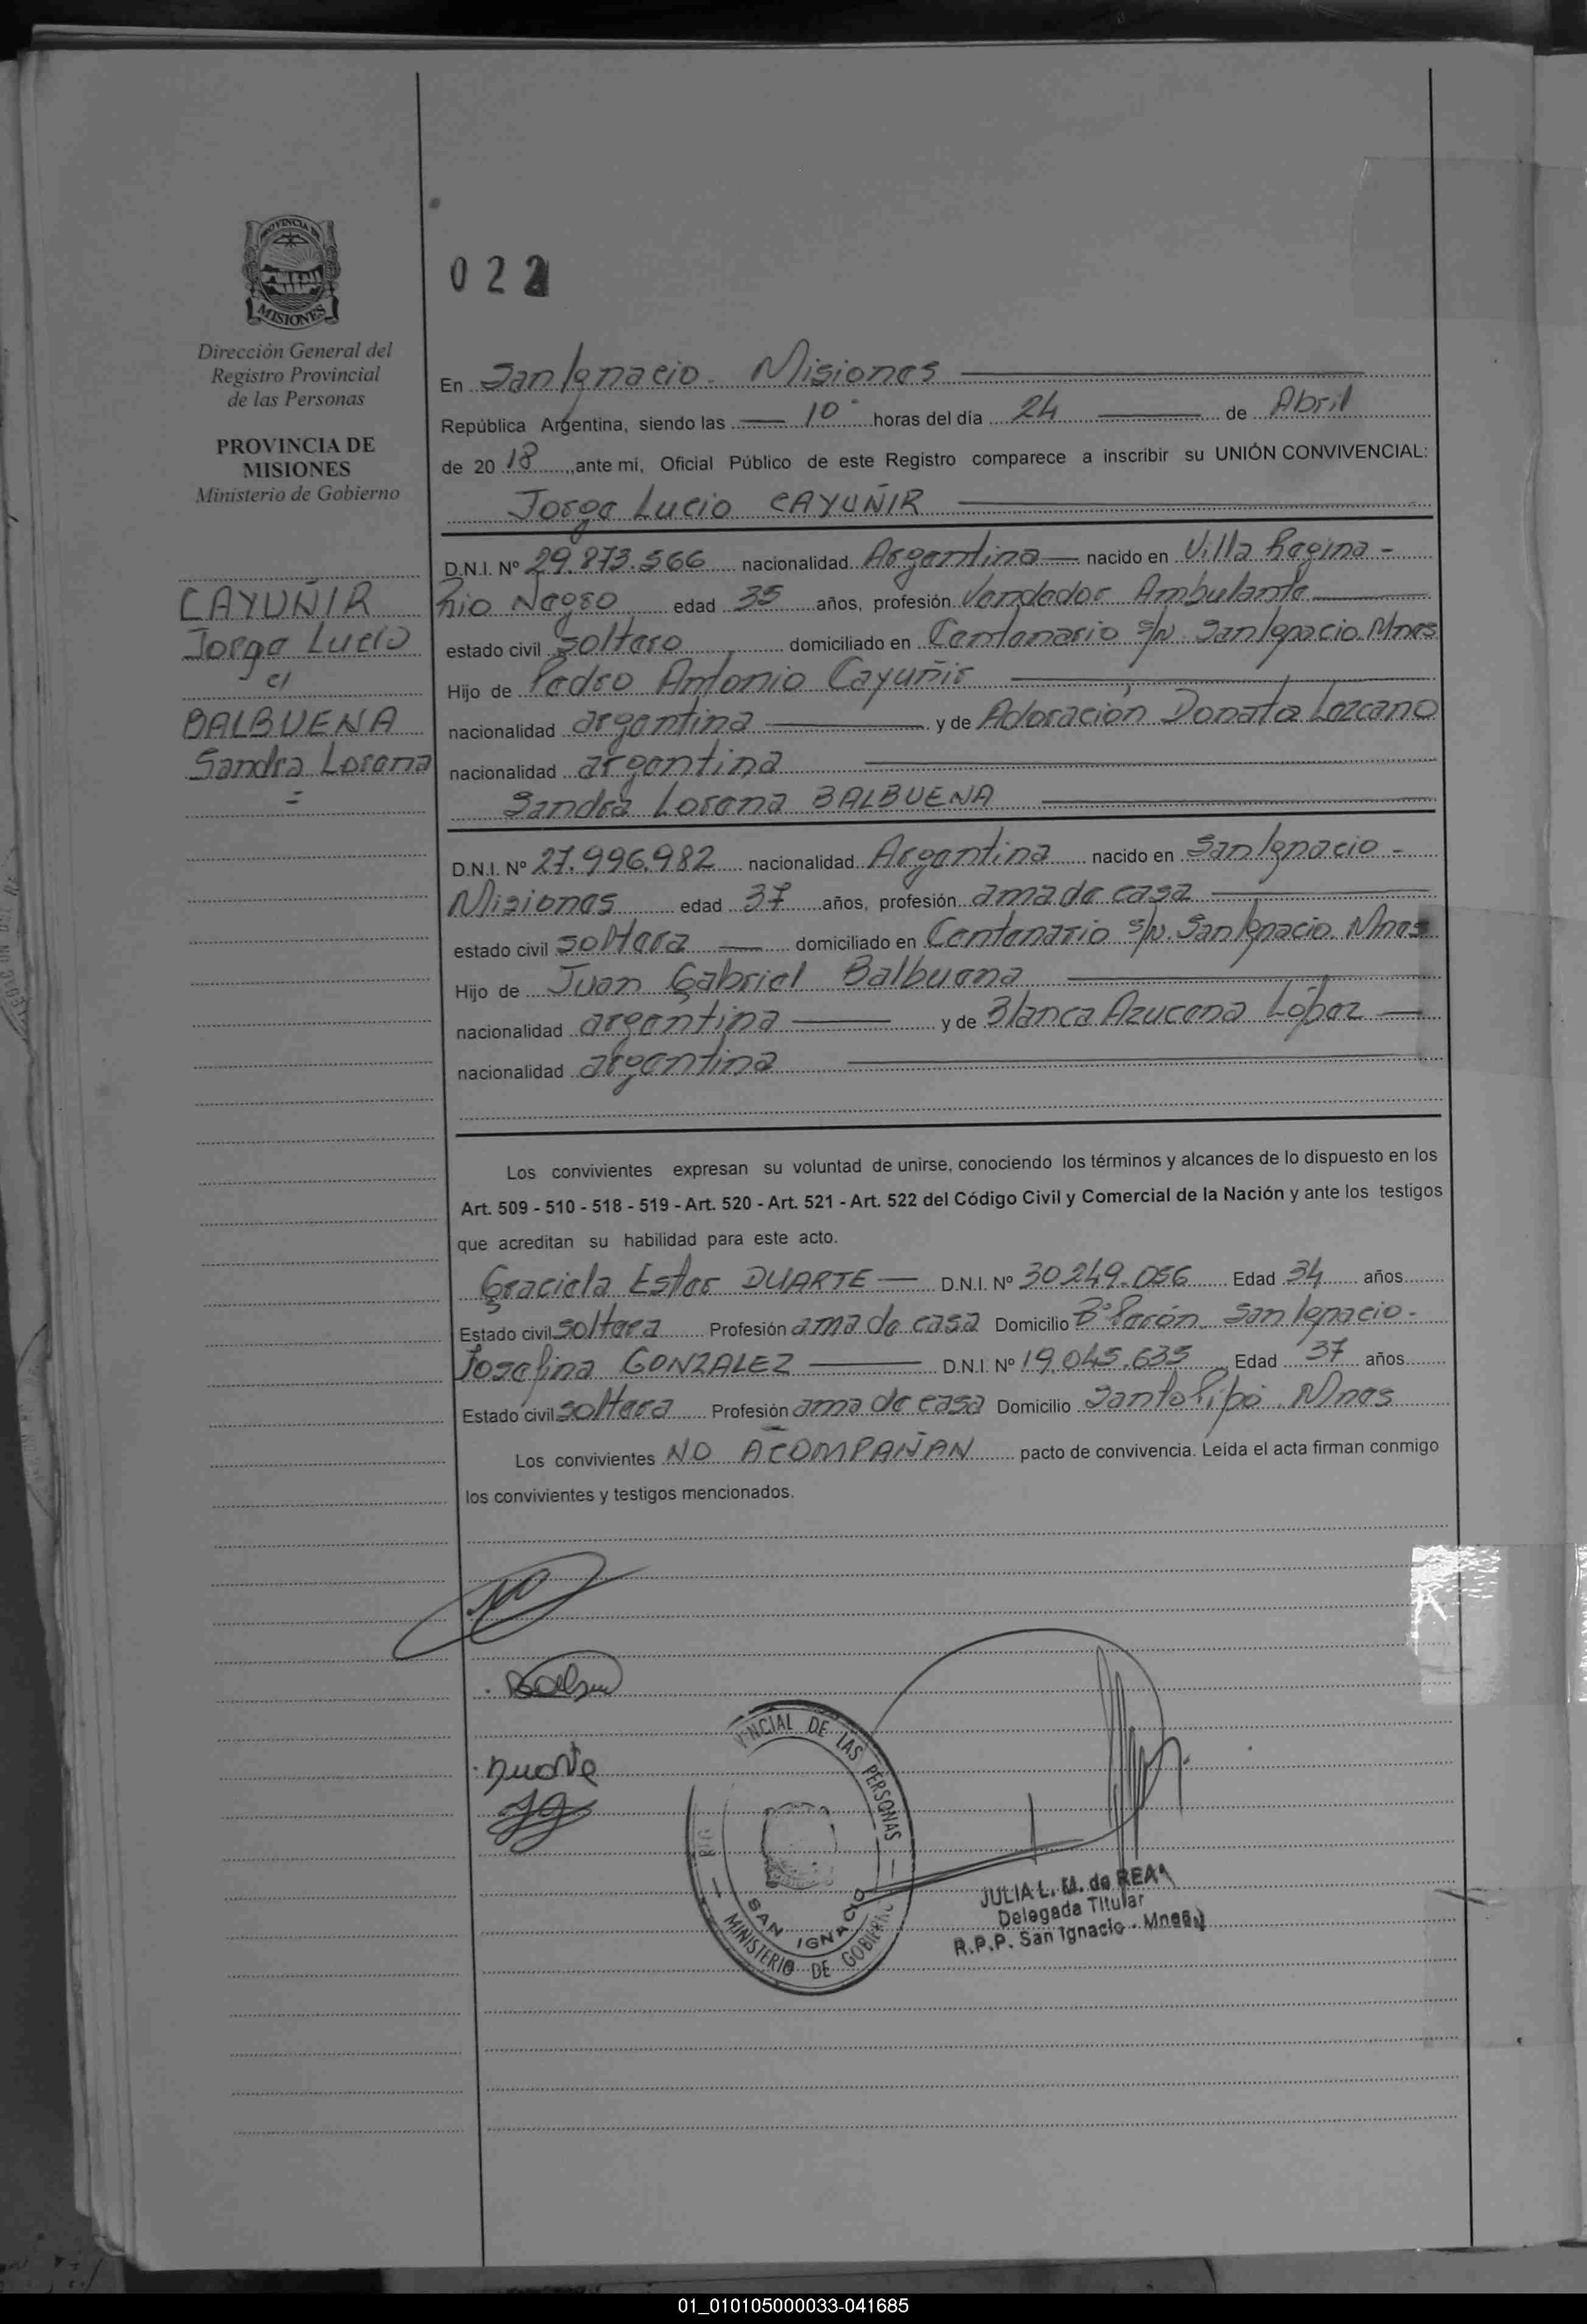 PROVINCIA DE
MISIONES
Dirección General del
Registro Provincial
de las Personas
PROVINCIA DE
MISIONES
Ministerio de Gobierno
CAYUÑIR
Jorge Lucio
c/
BALBUENA
Sandra Lorena
=
022
En San Ignacio - Misiones
República Argentina, siendo las 10 horas del día 24 de Abril
de 20 18 ,ante mi, Oficial Público de este Registro comparece a inscribir su UNIÓN CONVIVENCIAL:
Jorge Lucio CAYUÑIR
D.N.I. Nº 29.873.566 nacionalidad Argentina nacido en Villa Regina -
Rio Negro edad 35 años, profesión Vendedor Ambulante
estado civil soltero domiciliado en Centenario s/n. San Ignacio. Mnes
Hijo de Pedro Antonio Cayuñir
nacionalidad argentina y de Adoración Donata Lezcano
nacionalidad argentina
Sandra Lorena BALBUENA
D.N.I. Nº 27.996.982 nacionalidad Argentina nacido en San Ignacio -
Misiones edad 37 años, profesión ama de casa
estado civil soltera domiciliado en Centenario s/n. San Ignacio. Mnes
Hijo de Juan Gabriel Balbuena
nacionalidad argentina y de Blanca Azucena López
nacionalidad argentina
Los convivientes expresan su voluntad de unirse, conociendo los términos y alcances de lo dispuesto en los
Art. 509 - 510 - 518 - 519 - Art. 520 - Art. 521 - Art. 522 del Código Civil y Comercial de la Nación y ante los testigos
que acreditan su habilidad para este acto.
Graciela Ester DUARTE D.N.I. Nº 30.249.056 Edad 34 años
Estado civil soltera Profesión ama de casa Domicilio Bº Perón. San Ignacio -
Josefina GONZALEZ D.N.I. Nº 19.045.635 Edad 37 años
Estado civil soltera Profesión ama de casa Domicilio Santo Pipó. Mnes
Los convivientes NO ACOMPAÑAN pacto de convivencia. Leída el acta firman conmigo
los convivientes y testigos mencionados.
Duarte
NCIAL DE LAS PERSONAS
SAN IGNACIO
MINISTERIO DE GOBIERNO
JULIA L. M. de REA
Delegada Titular
R.P.P. San Ignacio - Mnes
01_010105000033-041685